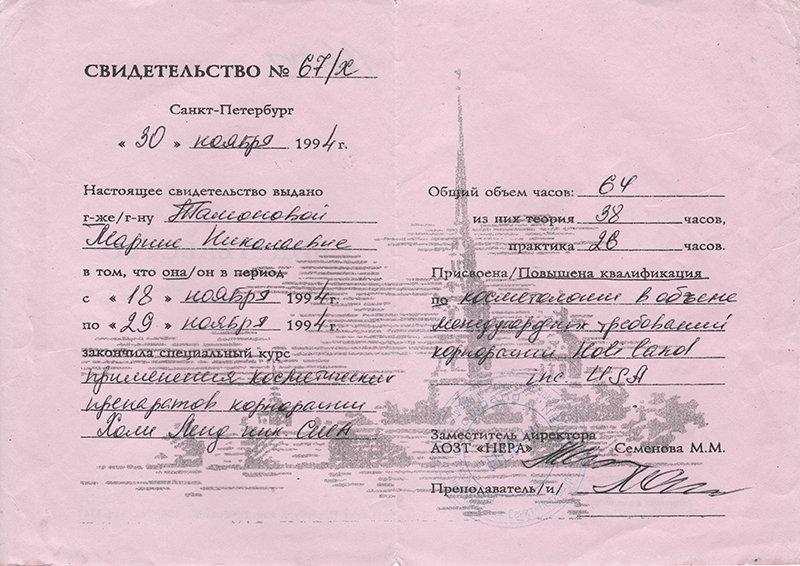 СВИДЕТЕЛЬСТВО № 67/х
Санкт-Петербург
« 30 » ноября 1994 г.
Настоящее свидетельство выдано
г-же/г-ну
Марине Николаевне
в том, что она/он в период
с « 18 » ноября 1994 г.
по « 29 » ноября 1994 г.
закончила специальный курс
применения косметических
препаратов корпорации
Холи Ленд инк. США
Общий объем часов: 64
из них теория 38 часов,
практика 26 часов.
Присвоена/Повышена квалификация
по косметологии в объеме
международных требований
корпорации Holi Land
inc. USA
Заместитель директора
АОЗТ «НЕРА» Семенова М.М.
Преподаватель/и/